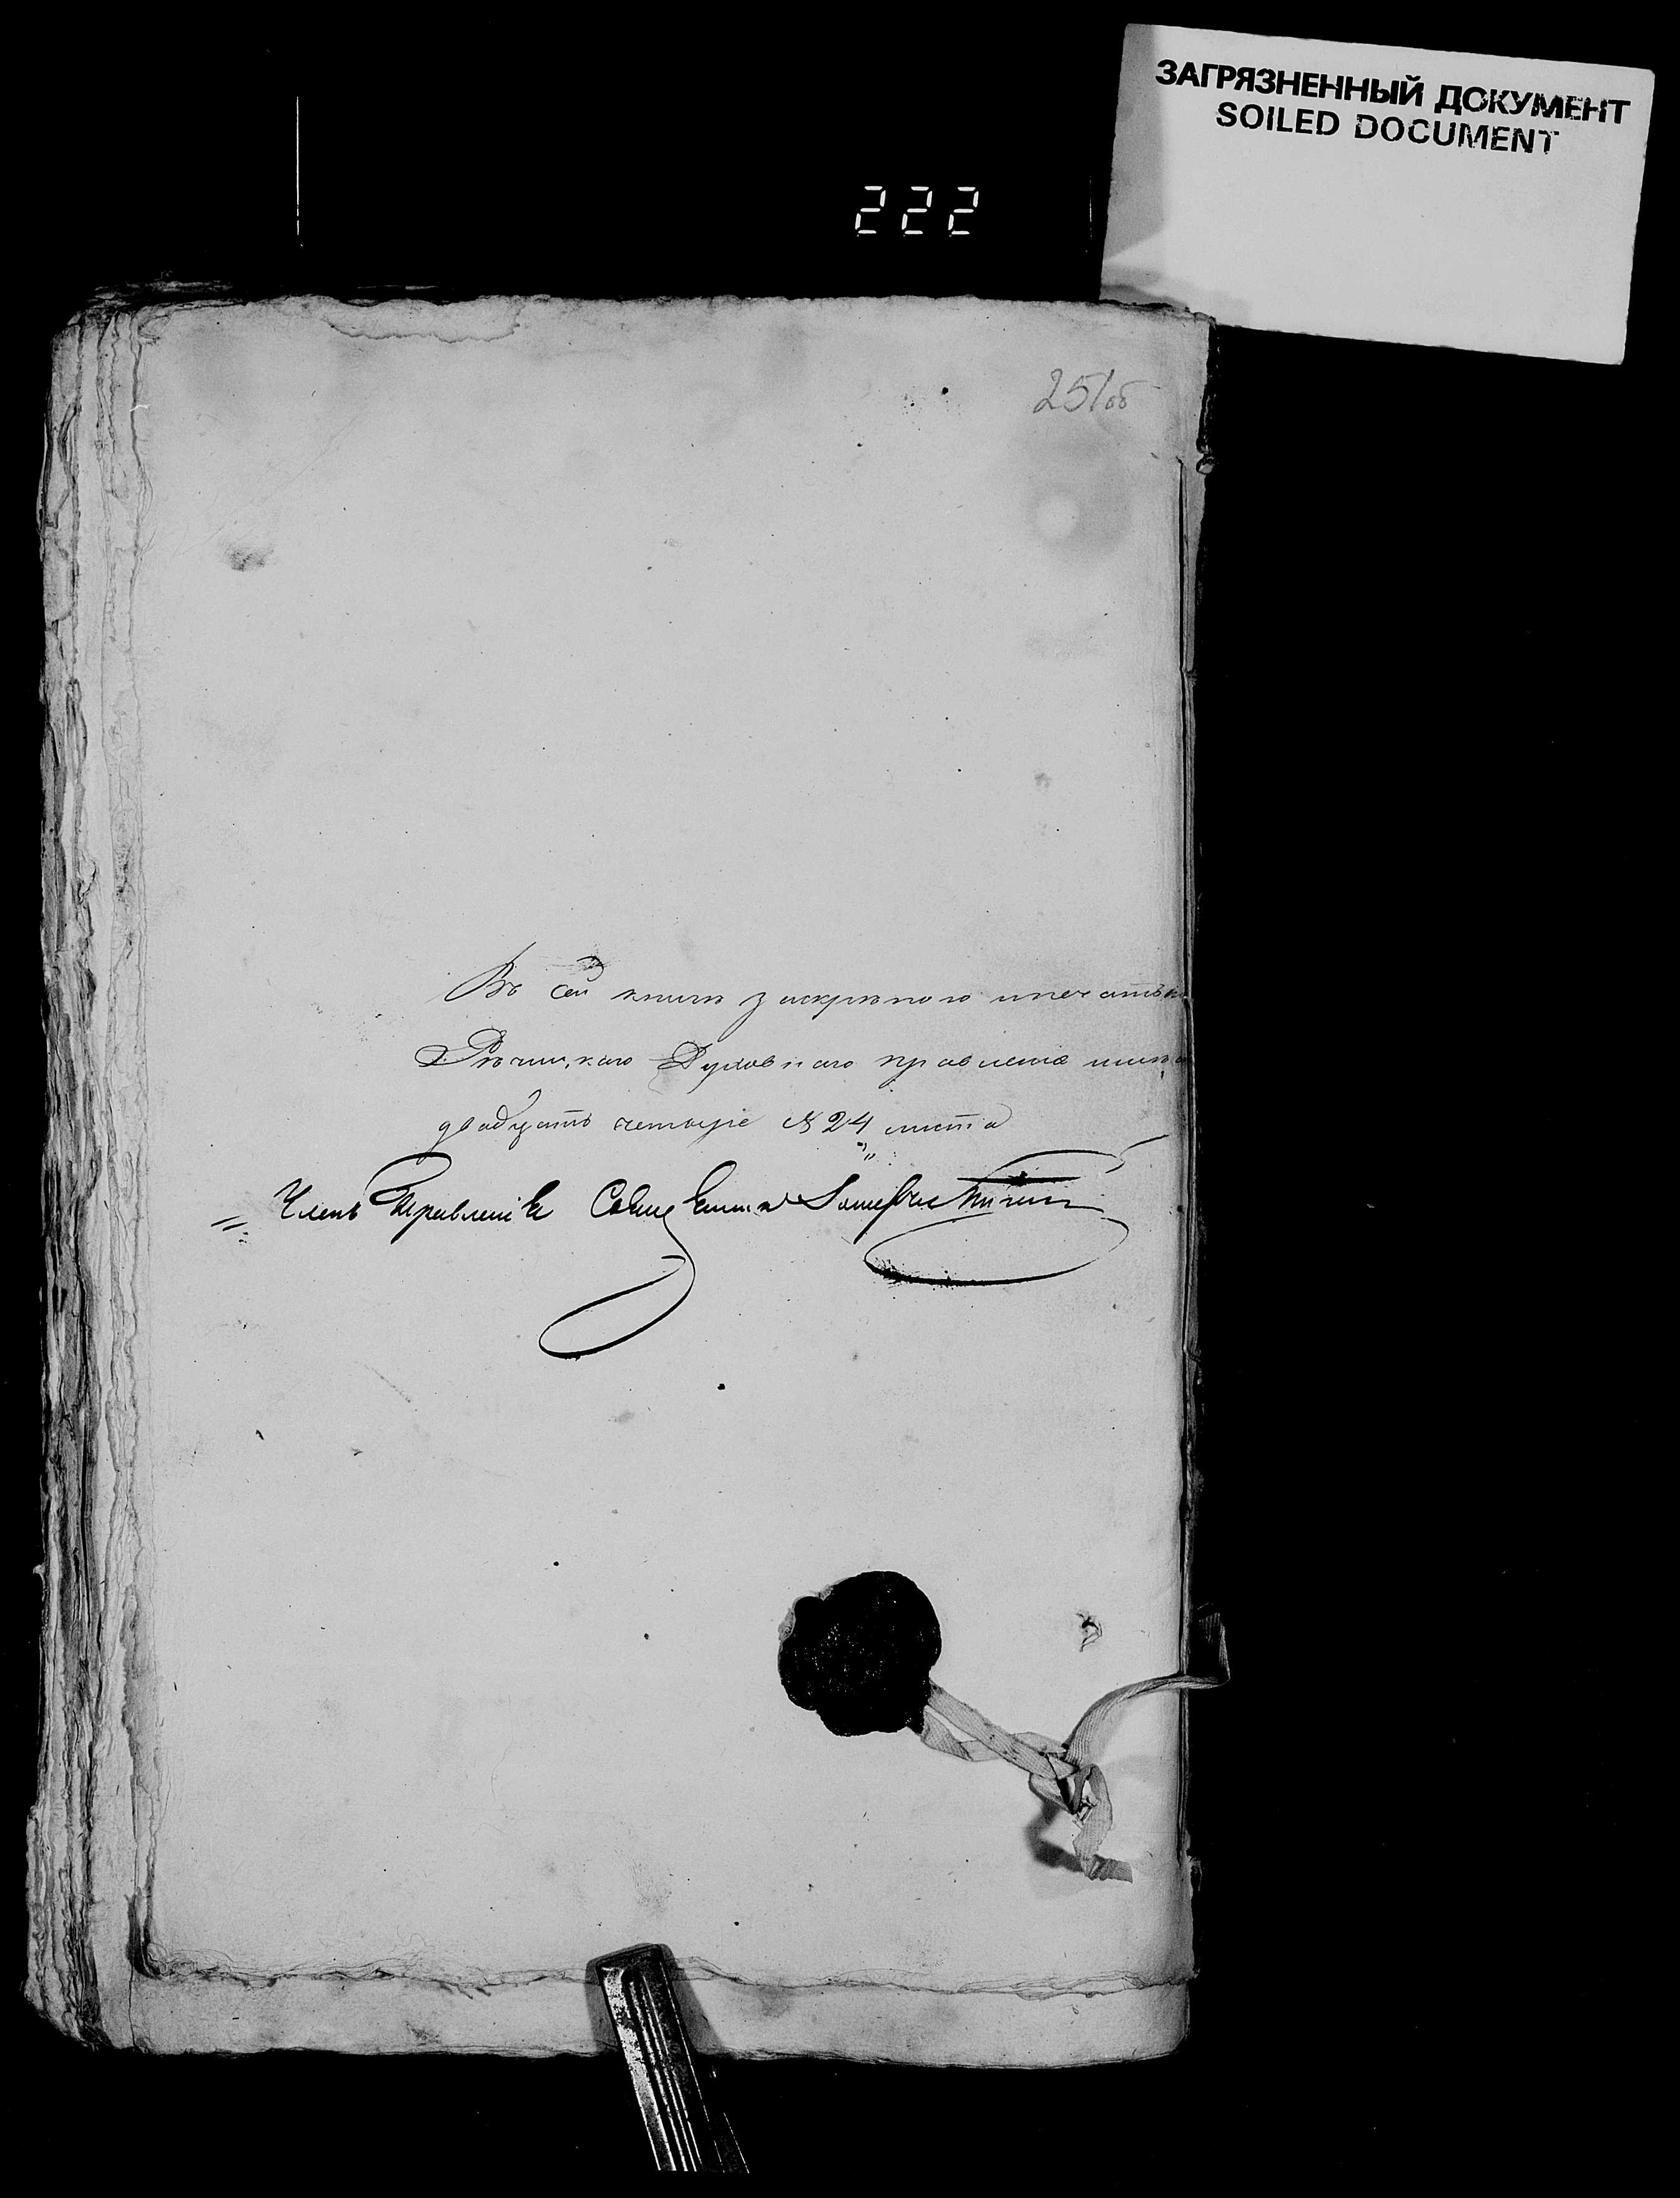 ЗАГРЯЗНЕННЫЙ ДОКУМЕНТ
SOILED DOCUMENT
222
251об
Въ сей книгѣ за скрѣпою и печатью
Рѣчицкаго Духовнаго правленія
двадцать четыре № 24 листа
Членъ Правленія Священникъ